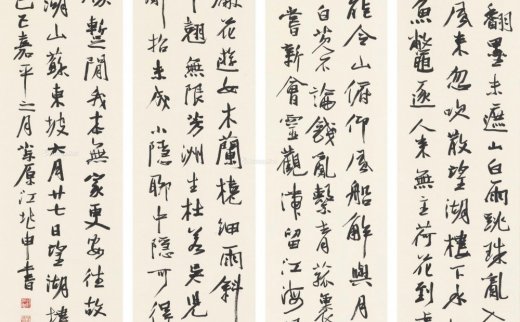 翻墨未遮山白雨跳珠亂入
風來忽吹散望湖樓下水
魚鱉逐人來無主荷花到
能令山俯仰風船解與月
白芡不論錢亂繫青菰裹
嘗新會靈觀滯留江海
花遊女木蘭橈細雨斜
翹無限芳洲生杜若吳兒
招未成小隱聊中隱可得
暫閒我本無家更安往故
湖山蘇東坡六月廿七日望湖樓
己巳嘉平之月草原江兆申書